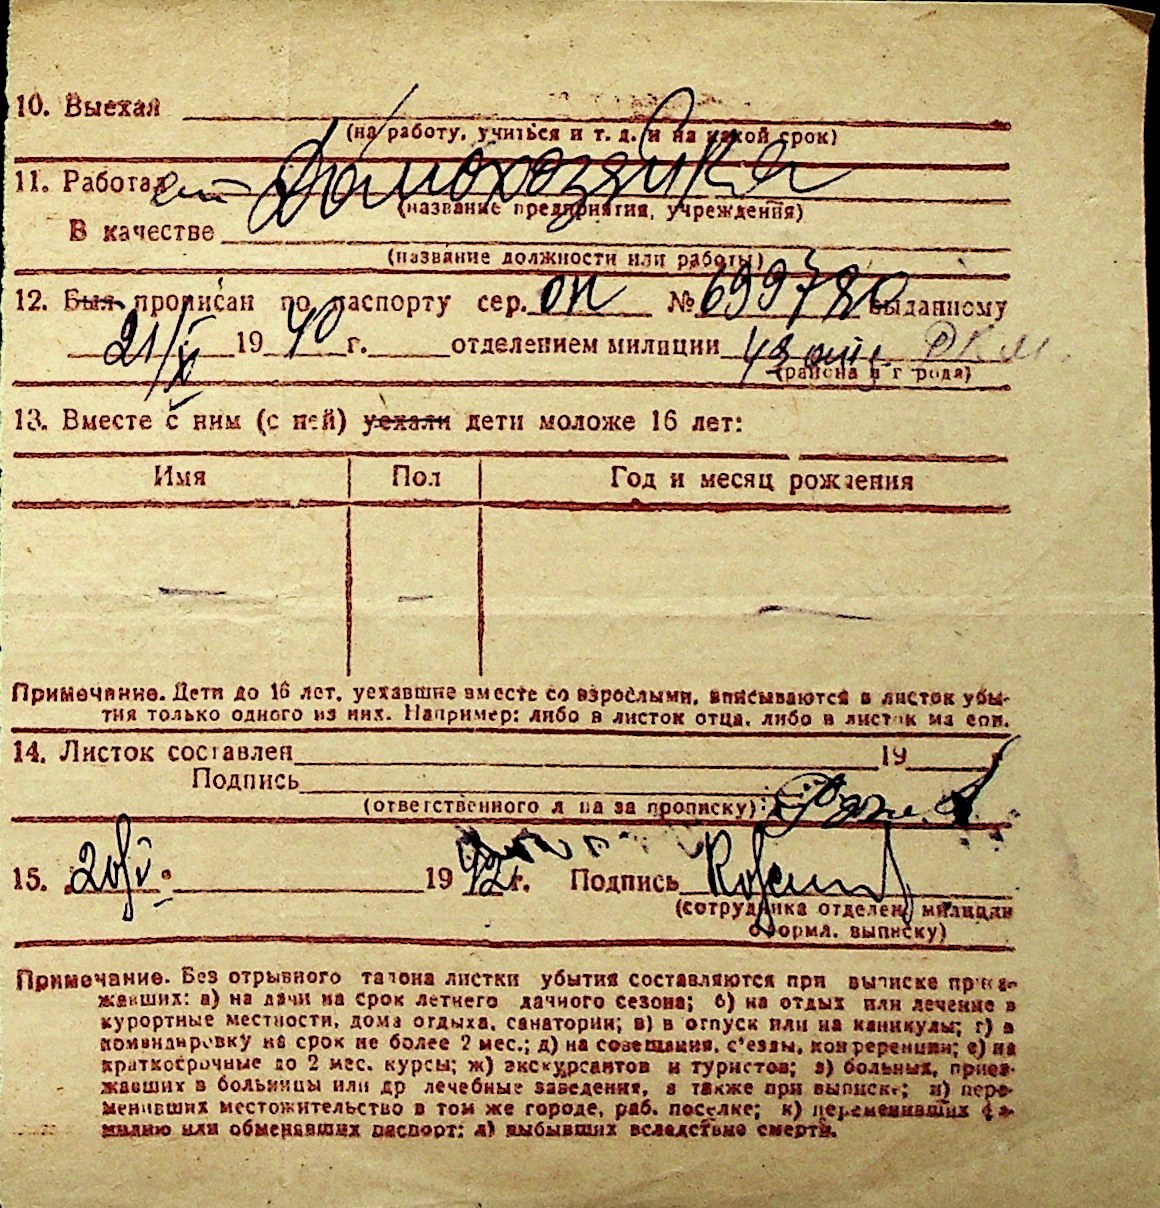 10. Выехал
(на работу, учиться и т. д. и на какой срок)
11. Работал Домохозяйка
(название предприятия, учреждения)
В качестве
(название должности или работы)
12. Был прописан по паспорту сер. ОП № 699780 выданному
21/V 1940 г. отделением милиции 43 РКМ.
(района и города)
13. Вместе с ним (с ней) уехали дети моложе 16 лет:
Имя Пол Год и месяц рождения
— — —
Примечание. Дети до 16 лет, уехавшие вместе со взрослыми, вписываются в листок убы-
тия только одного из них. Например: либо в листок отца, либо в листок матери.
14. Листок составлен 19 г.
Подпись
(ответственного лица за прописку)
15. 20/V 1942 г. Подпись
(сотрудника отделен. милиции
оформл. выписку)
Примечание. Без отрывного талона листки убытия составляются при выписке приез-
жавших: а) на дачи на срок летнего дачного сезона; б) на отдых или лечение в
курортные местности, дома отдыха, санатории; в) в отпуск или на каникулы; г) в
командировку на срок не более 2 мес.; д) на совещания, съезды, конференции; е) на
краткосрочные до 2 мес. курсы; ж) экскурсантов и туристов; з) больных, приез-
жавших в больницы или др лечебные заведения, а также при выписке; и) пере-
менивших местожительство в том же городе, раб. поселке; к) переменивших фа-
милию или обменявших паспорт; л) выбывших вследствие смерти.